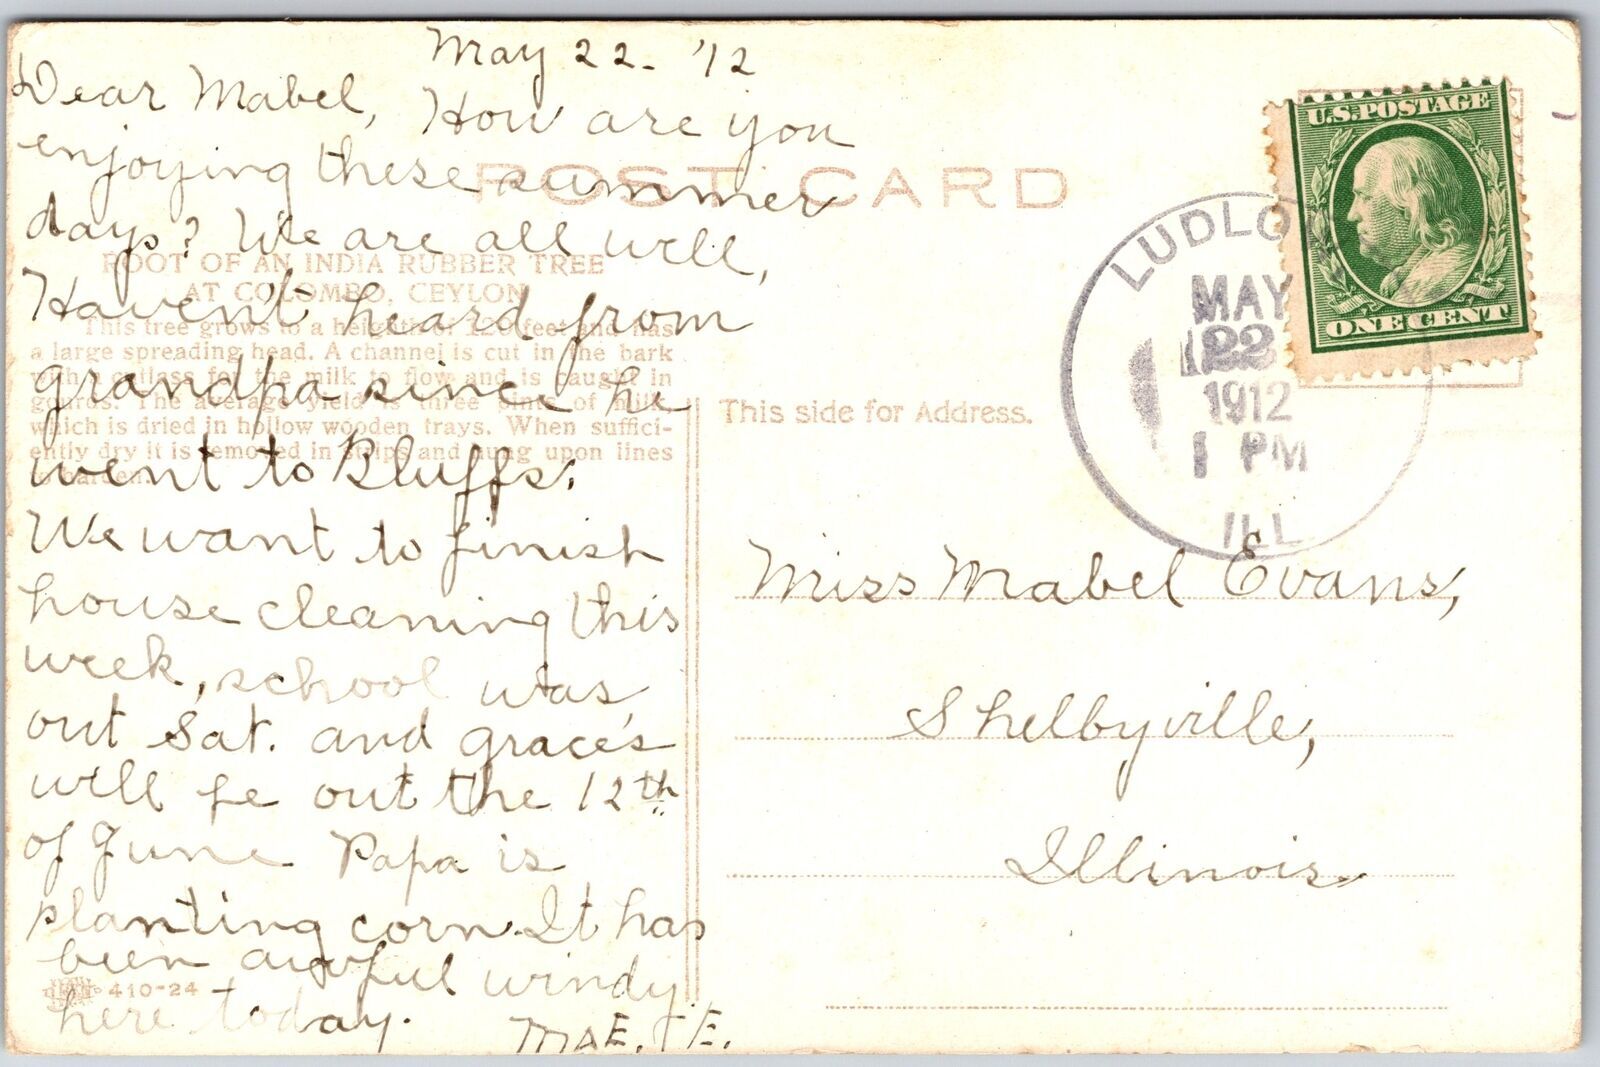 May 22- '12
Dear Mabel, How are you
enjoying these summer
days? We are all well,
Haven't heard from
grandpa since he
went to Bluffs.
We want to finish
house cleaning this
week, school was
out Sat. and Grace's
will be out the 12th
of June Papa is
planting corn. It has
been awful windy
here today.
MAE. E.
POST CARD
ROOT OF AN INDIA RUBBER TREE
AT COLOMBO, CEYLON
This tree grows to a heighth of 120 feet and has
a large spreading head. A channel is cut in the bark
with a cutlass for the milk to flow and is caught in
gourds. The average yield is three pints of milk,
which is dried in hollow wooden trays. When suffici-
ently dry it is removed in strips and hung upon lines
to harden.
410-24
This side for Address.
U.S.POSTAGE
ONE CENT
LUDLOW
MAY
22
1912
1 PM
ILL
Miss Mabel Evans,
Shelbyville,
Illinois.